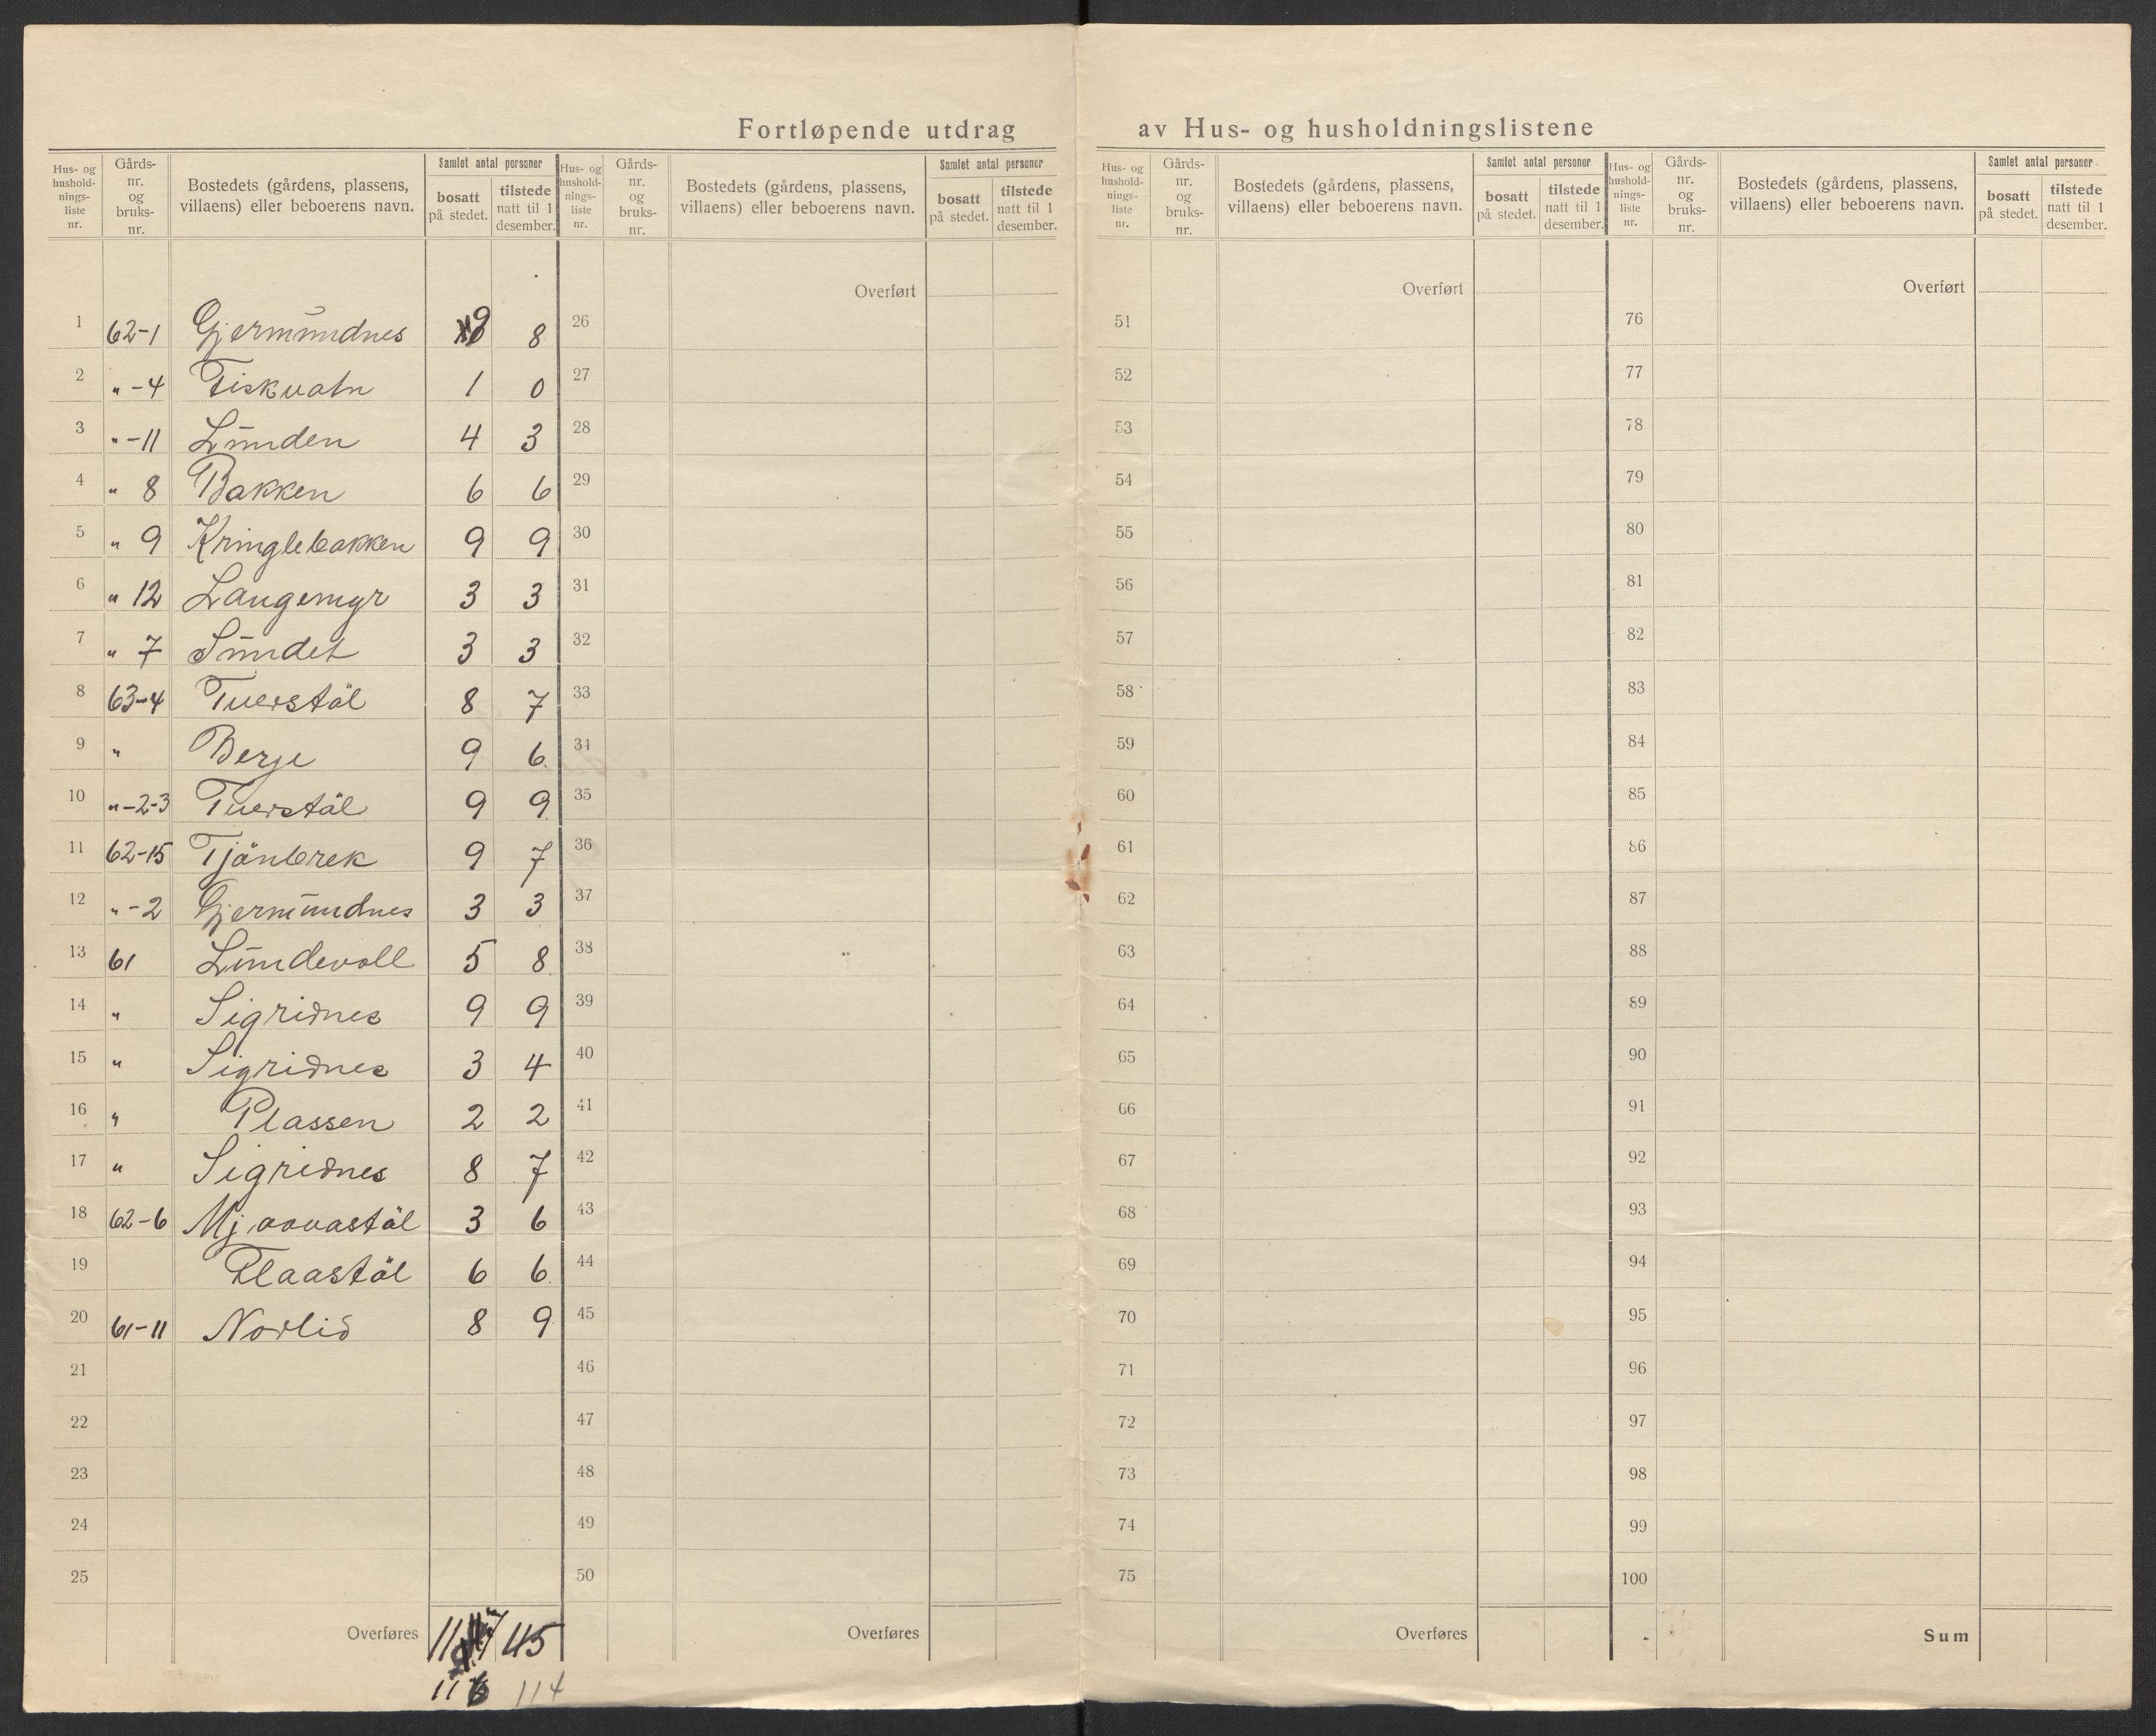 Fortløpende utdrag av Hus- og husholdningslistene
Hus- og hushold- nings- liste nr. | Gårds- nr. og bruks- nr. | Bostedets (gårdens, plassens, villaens) eller beboerens navn. | Samlet antal personer | bosatt på stedet. | tilstede natt til 1 desember.
Hus- og hushold- nings- liste nr. | Gårds- nr. og bruks- nr. | Bostedets (gårdens, plassens, villaens) eller beboerens navn. | Samlet antal personer | bosatt på stedet. | tilstede natt til 1 desember.
Hus- og hushold- nings- liste nr. | Gårds- nr. og bruks- nr. | Bostedets (gårdens, plassens, villaens) eller beboerens navn. | Samlet antal personer | bosatt på stedet. | tilstede natt til 1 desember.
Hus- og hushold- nings- liste nr. | Gårds- nr. og bruks- nr. | Bostedets (gårdens, plassens, villaens) eller beboerens navn. | Samlet antal personer | bosatt på stedet. | tilstede natt til 1 desember.
1 62-1 Gjermundnes 9 8
2 " -4 Fiskvatn 1 0
3 " -11 Lunden 4 3
4 " 8 Bakken 6 6
5 " 9 Kringlebakken 9 9
6 " 12 Langemyr 3 3
7 " 7 Sundet 3 3
8 63-4 Tverstöl 8 7
9 " Berge 9 6
10 " -2-3 Tverstöl 9 9
11 62-15 Tjönbrek 9 7
12 " -2 Gjermundnes 3 3
13 61 Lundevoll 5 8
14 " Sigridnes 9 9
15 " Sigridnes 3 4
16 " Plassen 2 2
17 " Sigridnes 8 7
18 62-6 Mjaavastöl 3 6
19 Flaastöl 6 6
20 61-11 Norlid 8 9
21
22
23
24
25
Overføres 115
116 114
Overført
26
27
28
29
30
31
32
33
34
35
36
37
38
39
40
41
42
43
44
45
46
47
48
49
50
Overføres
Overført
51
52
53
54
55
56
57
58
59
60
61
62
63
64
65
66
67
68
69
70
71
72
73
74
75
Overføres
Overført
76
77
78
79
80
81
82
83
84
85
86
87
88
89
90
91
92
93
94
95
96
97
98
99
100
Sum